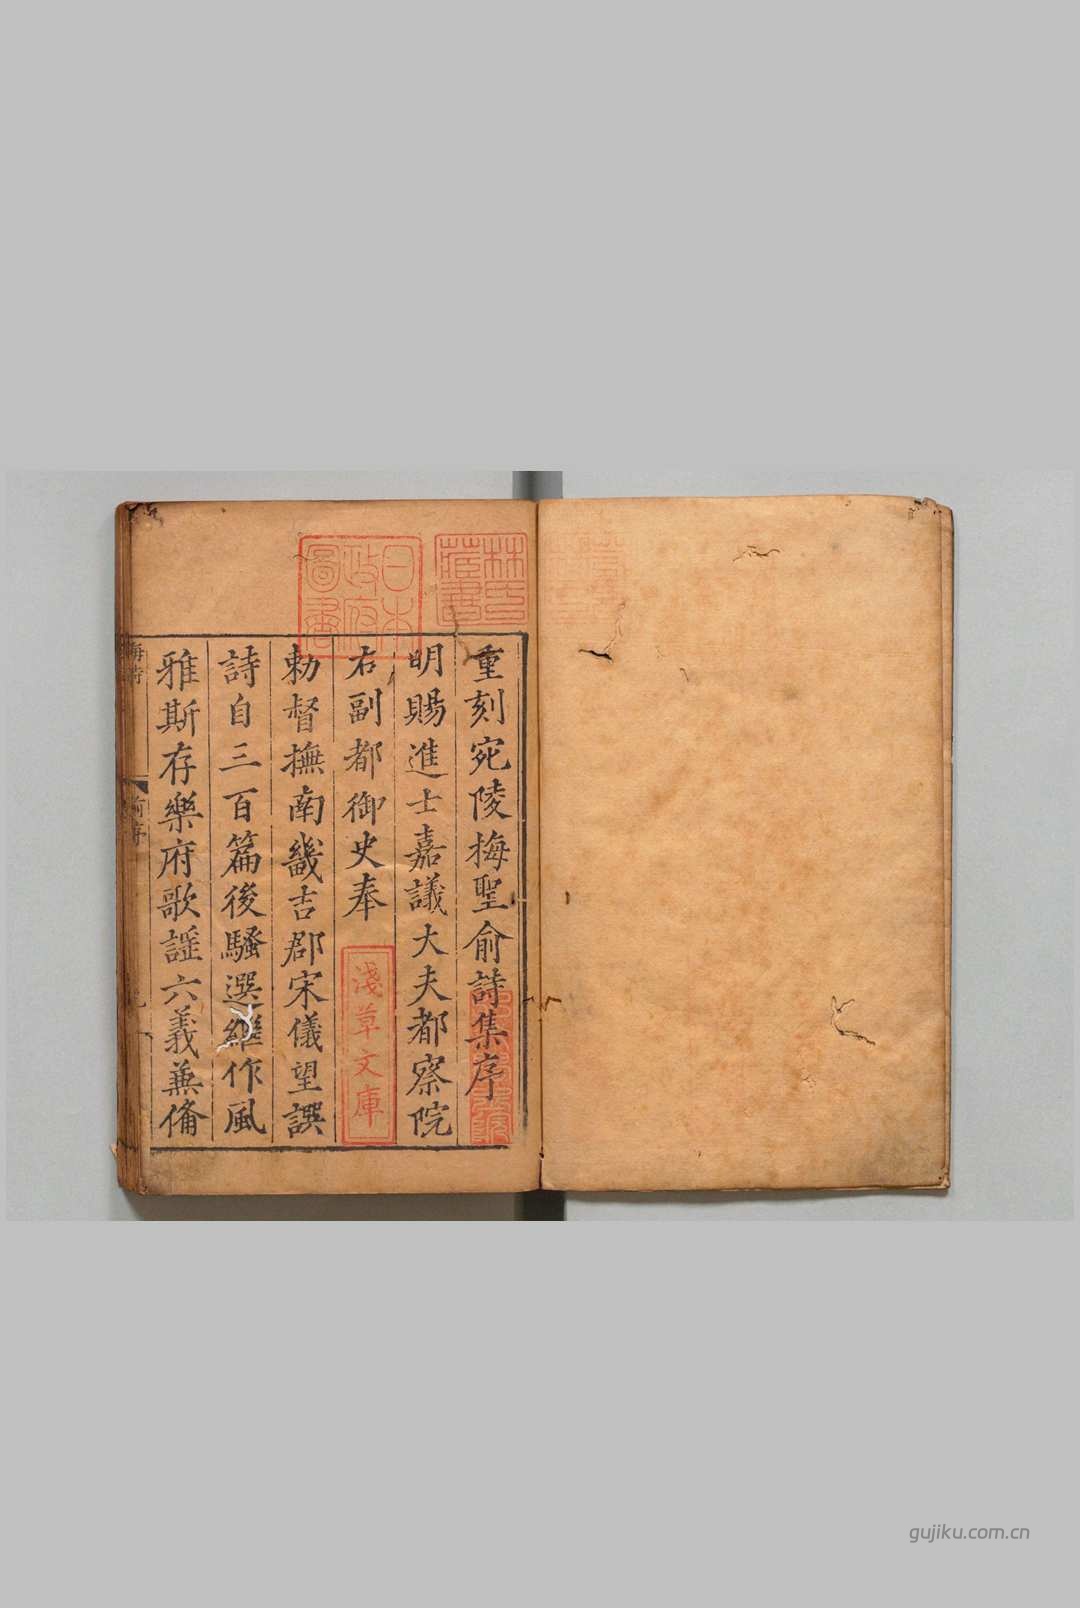 重刻宛陵梅聖俞詩集序
明賜進士嘉議大夫都察院
右副都御史奉
勅督撫南畿吉郡宋儀望譔
詩自三百篇後騷選繼作風
雅斯存樂府歌謡六義兼俻
林氏藏書
日本政府圖書
淺草文庫
梅詩
前序
gujiku.com.cn